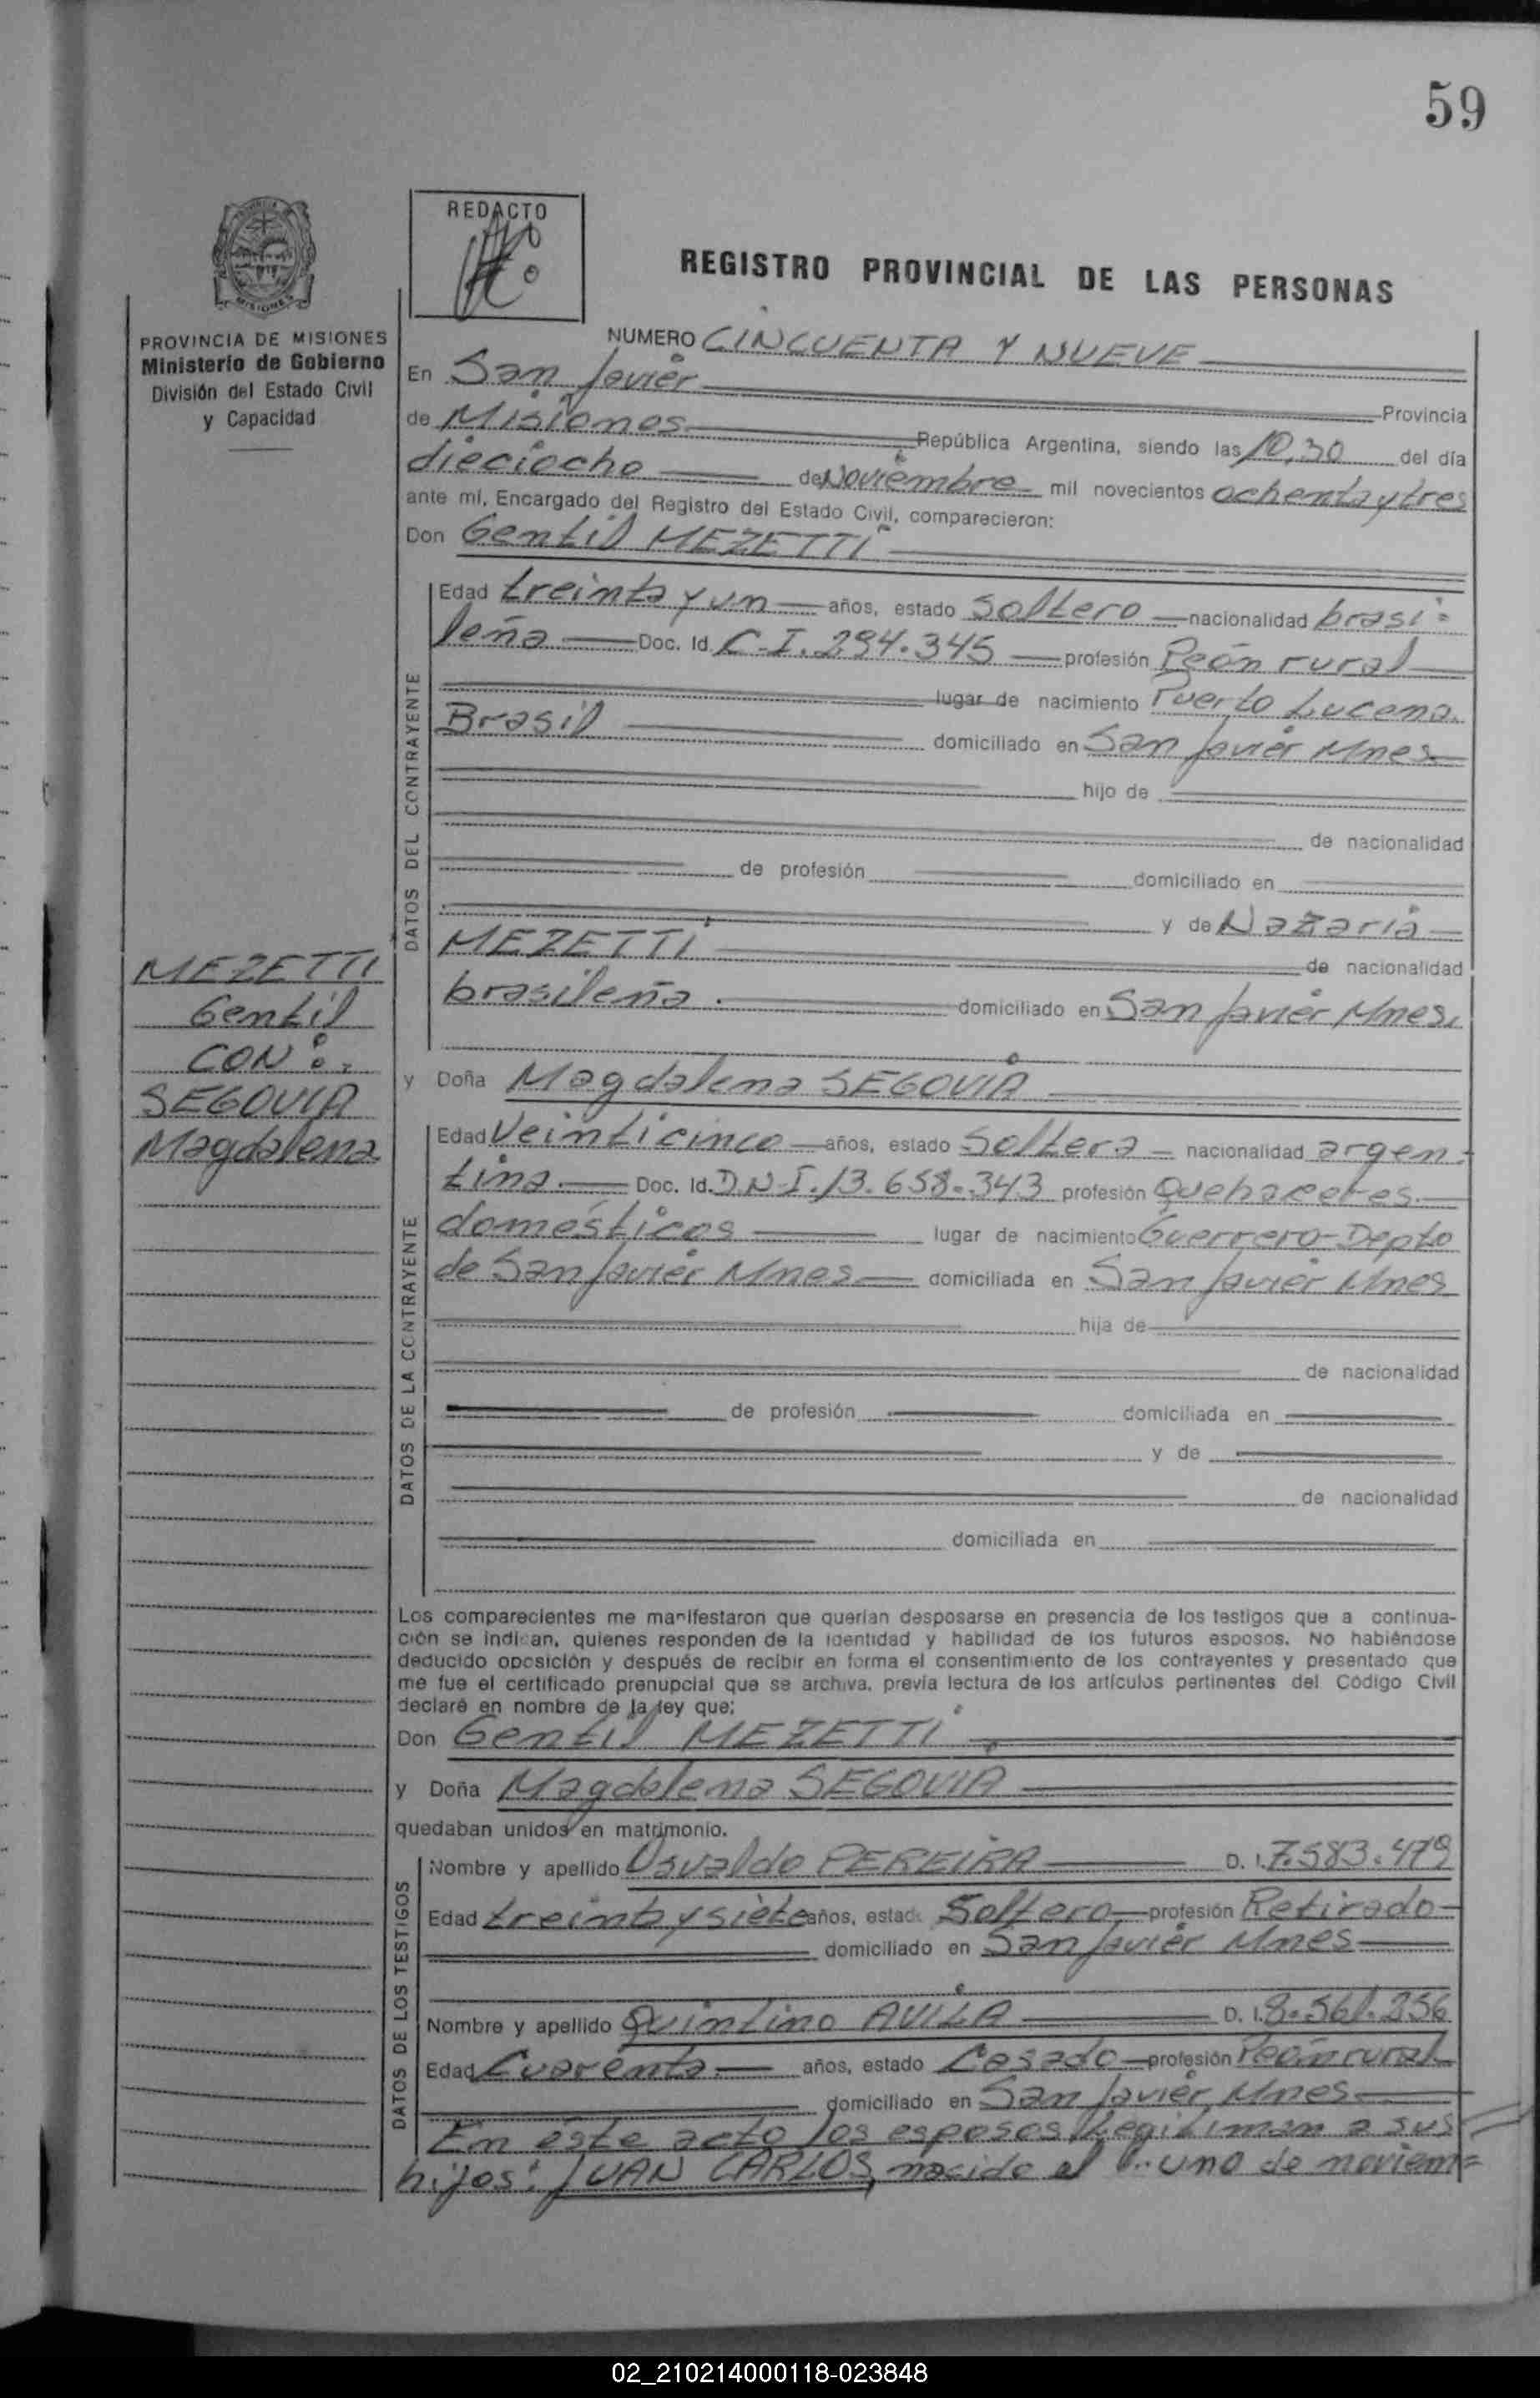 59
REDACTO
REGISTRO PROVINCIAL DE LAS PERSONAS
PROVINCIA DE MISIONES
Ministerio de Gobierno
División del Estado Civil
y Capacidad
NUMERO CINCUENTA Y NUEVE
En San Javier Provincia
de Misiones República Argentina, siendo las 10,30 del día
dieciocho de Noviembre mil novecientos ochenta y tres
ante mí, Encargado del Registro del Estado Civil, comparecieron:
Don Gentil MEZETTI
DATOS DEL CONTRAYENTE
Edad treinta y un años, estado Soltero nacionalidad brasi-
leña Doc. Id. C.I. 294.345 profesión Peón rural
lugar de nacimiento Puerto Lucena
Brasil domiciliado en San Javier Mnes
hijo de
de nacionalidad
de profesión domiciliado en
y de Nazaria
MEZETTI de nacionalidad
brasileña domiciliado en San Javier Mnes.
MEZETTI
Gentil
CON:
SEGOVIA
Magdalena
y Doña Magdalena SEGOVIA
DATOS DE LA CONTRAYENTE
Edad Veinticinco años, estado Soltera nacionalidad argen-
tina Doc. Id. D.N.I. 13.658.343 profesión Quehaceres
domésticos lugar de nacimiento Guerrero-Depto
de San Javier Mnes domiciliada en San Javier Mnes
hija de
de nacionalidad
de profesión domiciliada en
y de
de nacionalidad
domiciliada en
Los comparecientes me manifestaron que querían desposarse en presencia de los testigos que a continua-
ción se indican, quienes responden de la identidad y habilidad de los futuros esposos. No habiéndose
deducido oposición y después de recibir en forma el consentimiento de los contrayentes y presentado que
me fue el certificado prenupcial que se archiva, previa lectura de los artículos pertinentes del Código Civil
declaré en nombre de la ley que:
Don Gentil MEZETTI
y Doña Magdalena SEGOVIA
quedaban unidos en matrimonio.
DATOS DE LOS TESTIGOS
Nombre y apellido Osvaldo PEREIRA D. I. 7.583.479
Edad treinta y siete años, estado Soltero profesión Retirado
domiciliado en San Javier Mnes
Nombre y apellido Quintino AVILA D. I. 8.561.256
Edad Cuarenta años, estado Casado profesión Peón rural
domiciliado en San Javier Mnes
En éste acto los esposos legitiman a sus
hijos: JUAN CARLOS, nacido el uno de noviem=
02_210214000118-023848